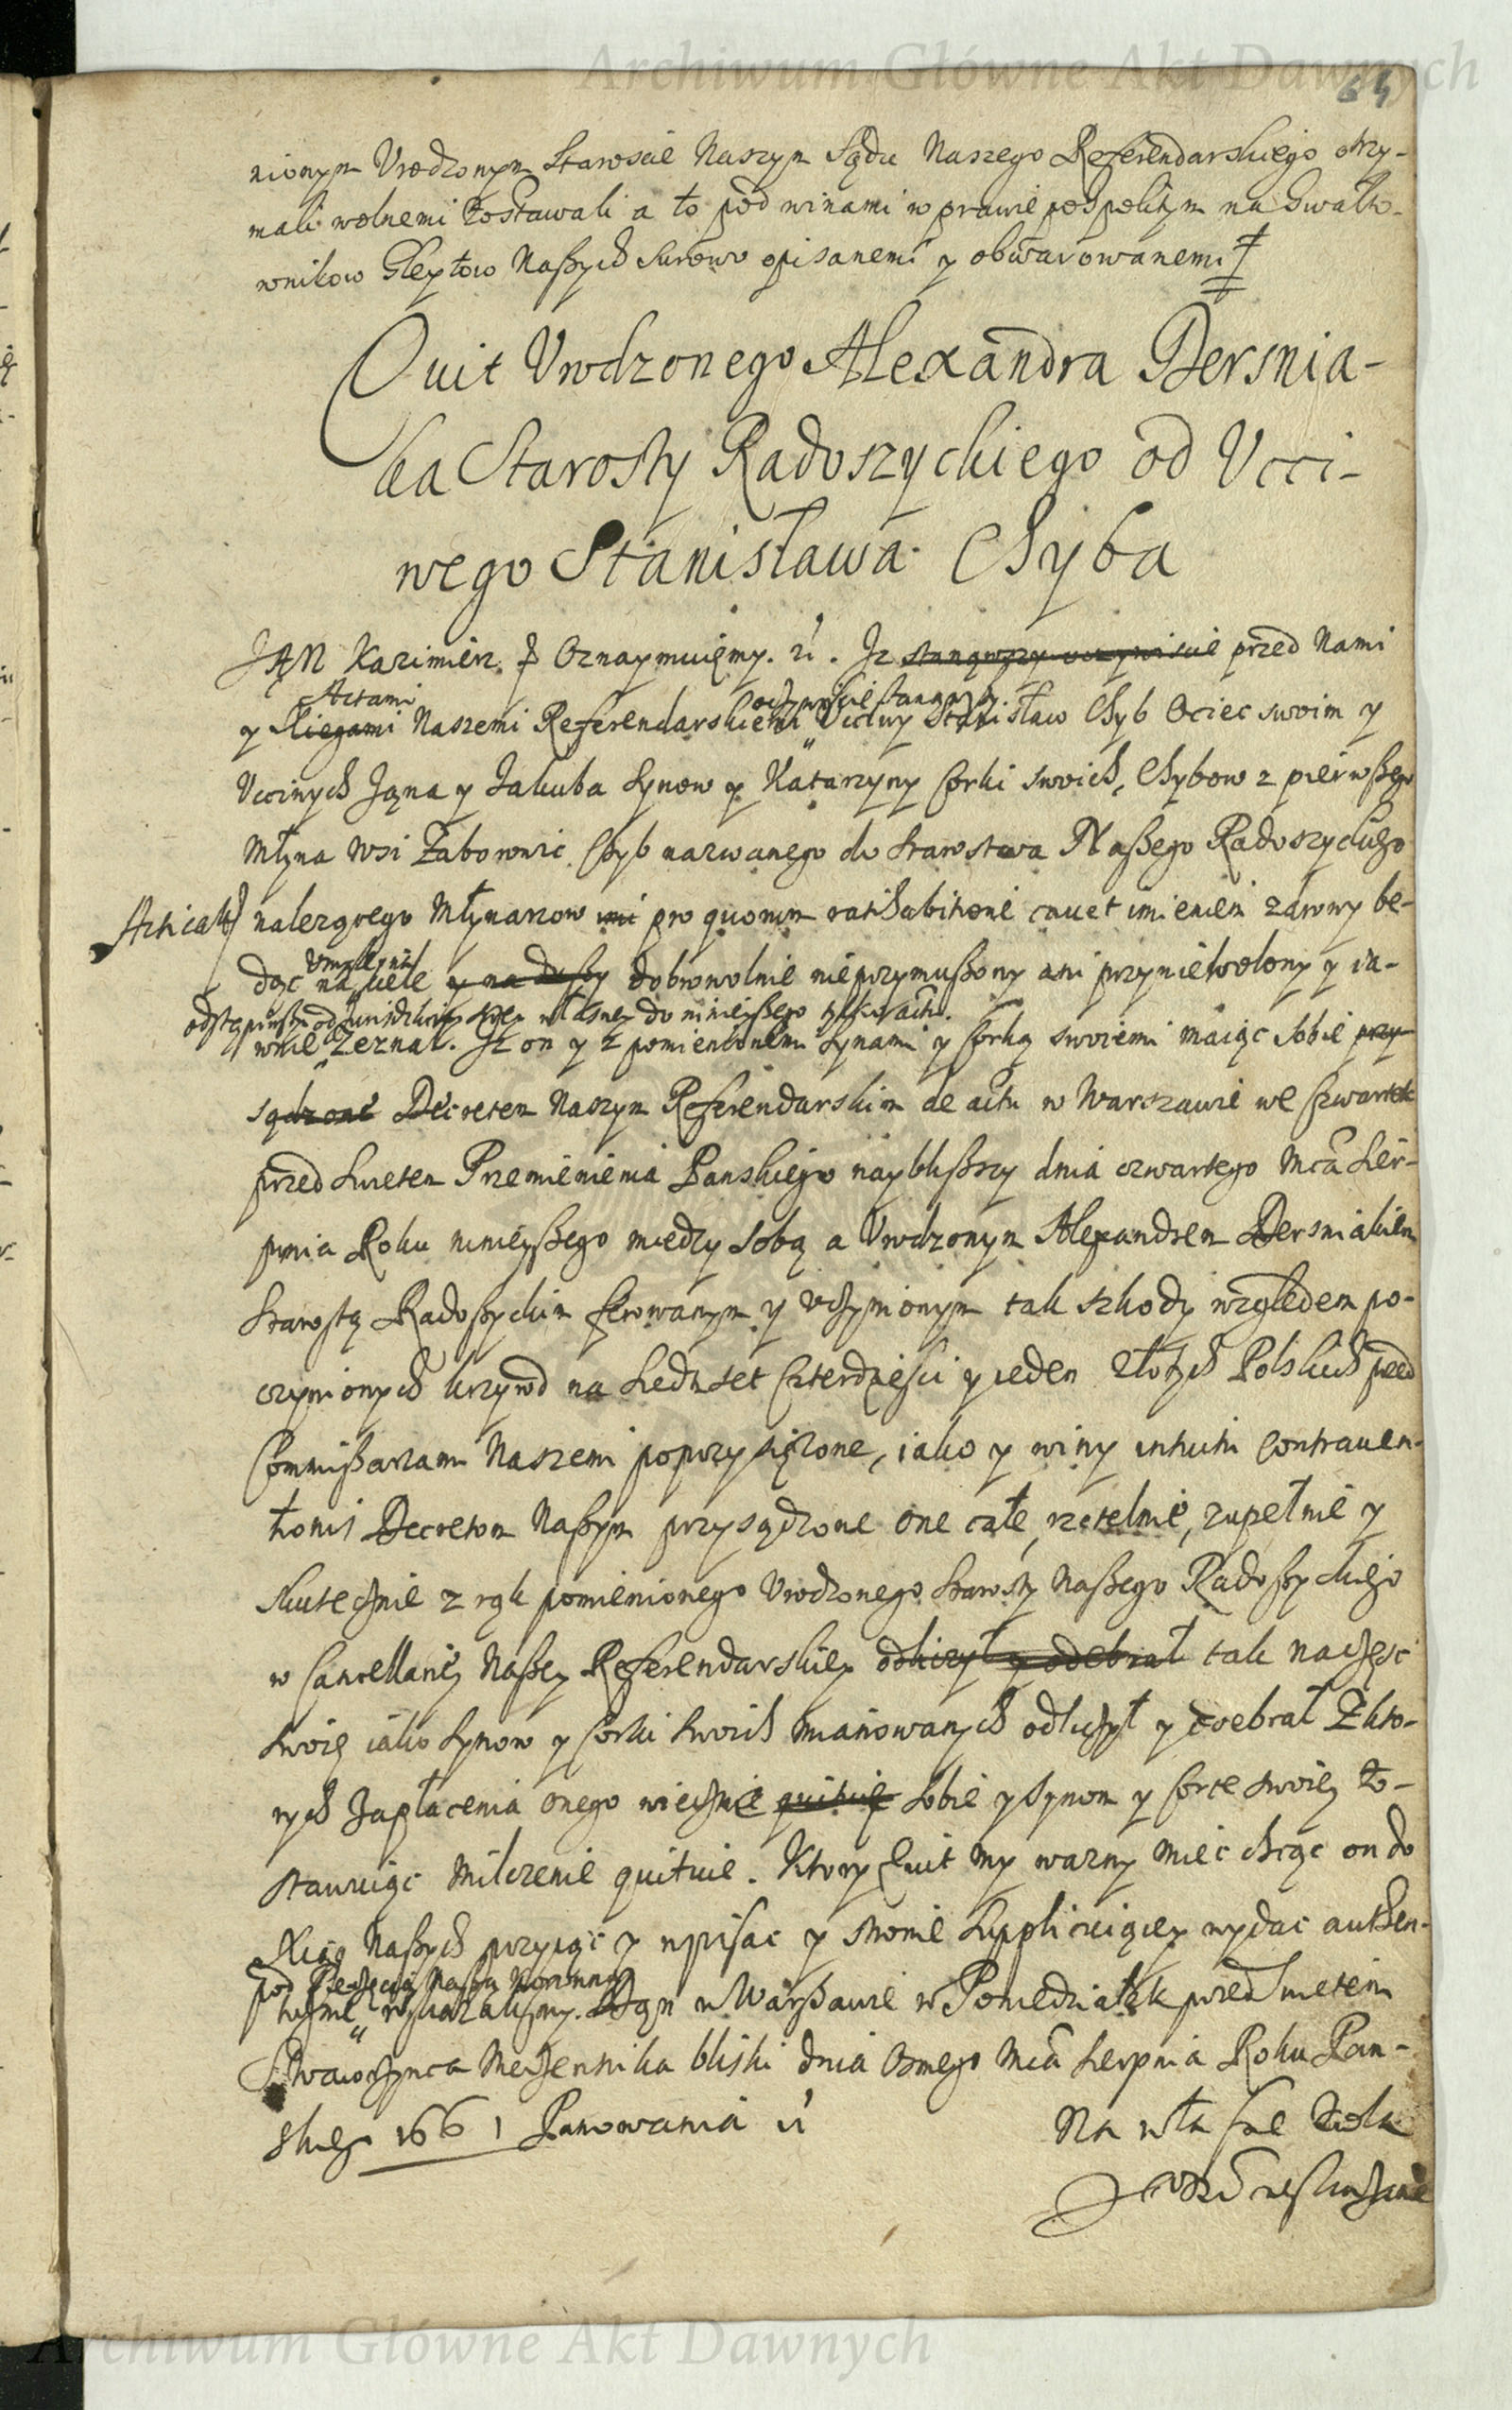 Archiwum Główne Akt Dawnych
64
nionym Vrodzonym Starosie Naszym Sądu Naszego Referendarskiego otrzy-
mali wolnemi zostawali a to pod winami w prawie pospolitym na Gwałto-
wnikow Gleytow Naßych surowo opisanemi y obwarowanemi
Quit Vrodzonego Alexandra Bersnia-
ka Starosty Radoszyckiego od Vcci-
wego Stanisława Chyba
JAN Kazimierz Oznaymuięmy. Iz stanąwszy oczywiscie przed Nami
Actami oczywiscie stanąwszy
y Xiegami Naszemi Referendarskiemi Vcciwy Stanisław Chyb Ociec swoim y
Vcciwych Jana y Jakuba Synow y Katarzyny Corki swoich, Chybow z pierwßego
Młyna Wsi Zabornic Chyb nazwanego do Starostwa Naßego Radoszyckiego
nalezącego Młynarzow pro quorum ratihabitione cauet imieniem zdrowy be-
Vmysle na
dąc na ciele y na dußy dobrowolnie nieprzymußony ani przyniewolony y ia-
odstąpiwßy od Jurisdictiey swey własney do ninieyßego tylko actu.
wnie Zeznał. Iz on y z pomienionemi Synami y Corką swoiemi maiąc sobie przy-
sądzone Decretem Naszym Referendarskim de actu w Warszawie we Czwartek
przed Swietem Przemienienia Panskiego naybliżßy dnia czwartego Mca Sier-
pnia Roku ninieyßego miedzy sobą a Vrodzonym Alexandrem Bersniakiem
Starostą Radoßyckim ferowanym y vczynionym tak szkody względem po-
czynionych krzywd na Siedmset Czterdziesci y ieden Złotych Polskich przed
Commißarzami Naszemi poprzysiężone, iako y winy intuitu contrauen-
tionis Decretom Naßym przysądzone one całe, rzetelnie, zupełnie y
skutecznie z rąk pomienionego Vrodzonego Starosty Naßego Radoßyckiego
w Cancellariey Naßey Referendarskiey odliczył y odebrał tak naczęsc
swoię iako Synow y Corki swoich mianowanych odliczył y odebrał Z kto-
rych Zapłacenia onego wiecznie quituie sobie y Synom y Corce swoiey zo-
stawuiąc milczenie quituie. Ktory Quit my wazny miec chcąc on do
Xiąg Naßych przyiąc y wpisac y stronie supplikuiącey wydac authen-
pod Pieczęcią Naßą Koronną
tycznie rozkazalismy. Dan w Warßawie w Poniedziałek przed Swietem
S Wawrzynca Męczennika bliski dnia osmego Mca Sierpnia Roku Pan-
skiego 1661 Panowania
Na własne
Archiwum Główne Akt Dawnych